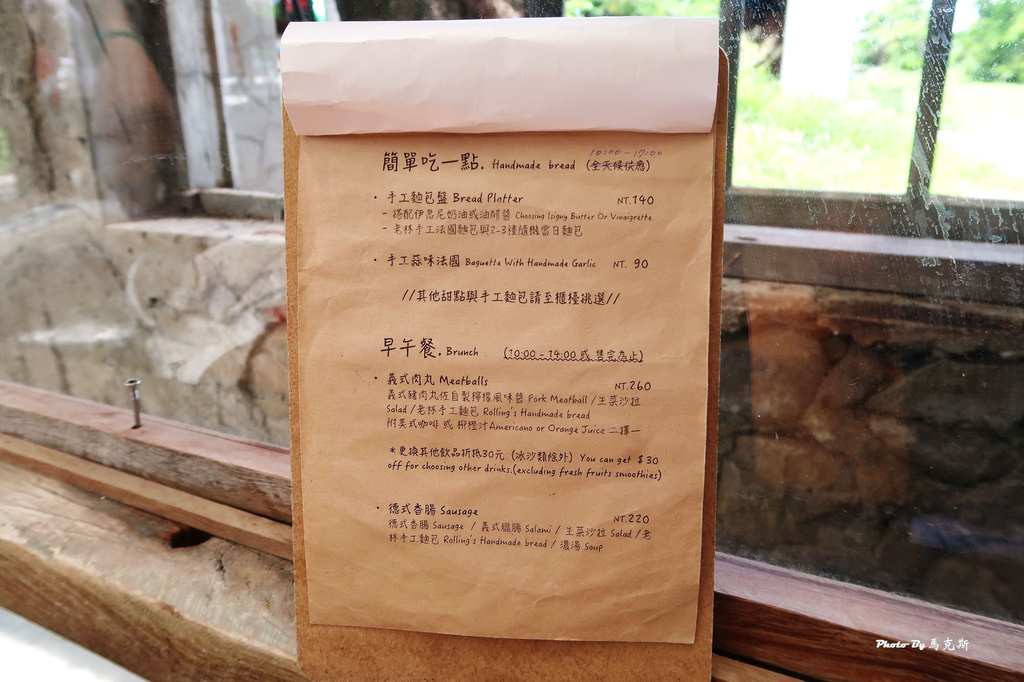 10:00 - 17:00
簡單吃一點. Handmade bread (全天候供應)
· 手工麵包盤 Bread Platter NT.140
- 搭配伊思尼奶油或油醋醬 Choosing Isigny Butter Or Vinaigrette
- 老林手工法國麵包與2-3種隨機當日麵包
· 手工蒜味法國 Baguette With Handmade Garlic NT. 90
//其他甜點與手工麵包請至櫃檯挑選//
早午餐. Brunch (10:00 - 14:00 或 售完為止)
· 義式肉丸 Meatballs NT.260
義式豬肉丸佐自製檸檬風味醬 Pork Meatball /生菜沙拉
Salad /老林手工麵包 Rolling's Handmade bread
附美式咖啡 或 柳橙汁Americano or Orange Juice 二擇一
*更換其他飲品折抵30元 (冰沙類除外) You can get $30
off for choosing other drinks.(excluding fresh fruits smoothies)
· 德式香腸 Sausage NT.220
德式香腸 Sausage / 義式臘腸 Salami / 生菜沙拉 Salad /老
林手工麵包 Rolling's Handmade bread / 濃湯 Soup
Photo By 馬克斯